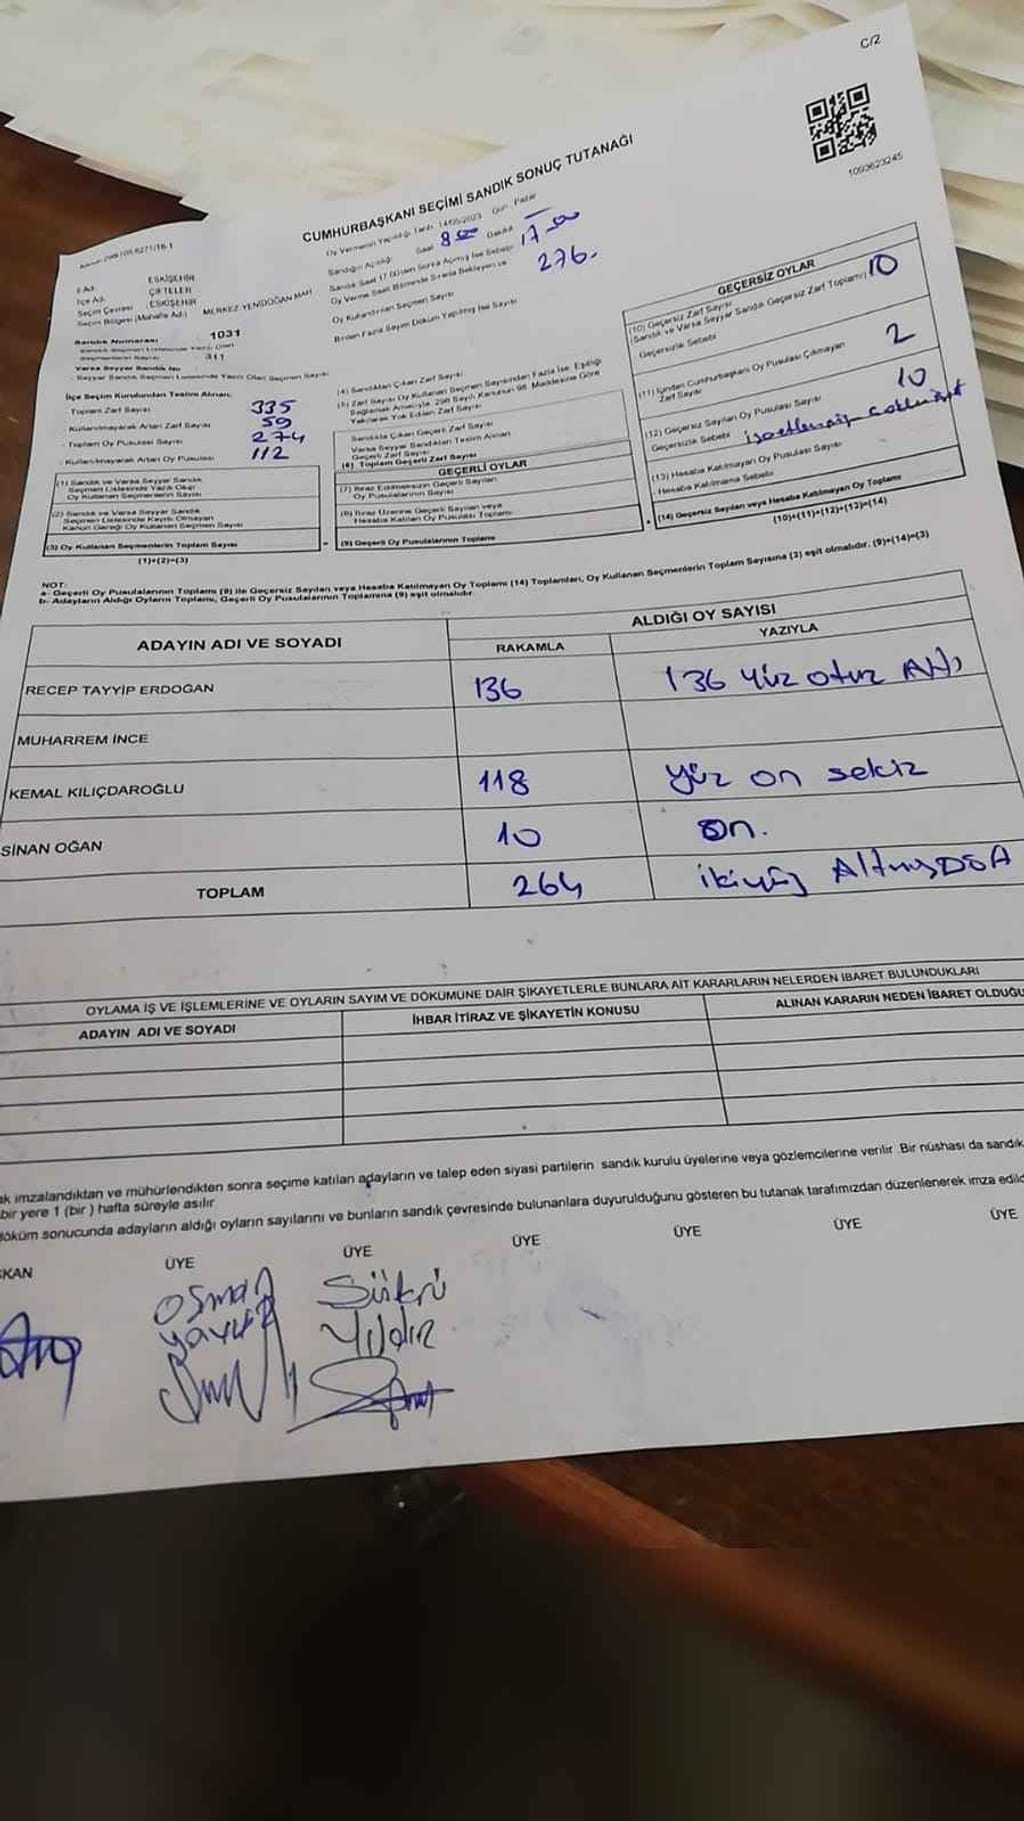 C/2
1093623245
CUMHURBAŞKANI SEÇİMİ SANDIK SONUÇ TUTANAĞI
Oy Vermenin Yapıldığı Tarih: 14/05/2023 Gün: Pazar
Sandığın Açıldığı Saat 8 00 Dakika 17 00
Sandık Saat 17.00'den Sonra Açılmış İse Sebebi
Oy Verme Saati Bitiminde Sırada Bekleyen ve
Oy Kullandırılan Seçmen Sayısı 276.
Birden Fazla Sayım Döküm Yapılmış İse Sayısı
İl Adı ESKİŞEHİR
İlçe Adı ÇİFTELER
Seçim Çevresi ESKİŞEHİR
Seçim Bölgesi (Mahalle Adı) MERKEZ-YENİDOĞAN MAH
Sandık Numarası 1031
Sandık Seçmen Listesinde Yazılı Olan
Seçmenlerin Sayısı 311
Varsa Seyyar Sandık No
Seyyar Sandık Seçmen Listesinde Yazılı Olan Seçmen Sayısı
İlçe Seçim Kurulundan Teslim Alınan:
Toplam Zarf Sayısı 335
Kullanılmayarak Artan Zarf Sayısı 59
Toplam Oy Pusulası Sayısı 274
Kullanılmayarak Artan Oy Pusulası 112
(1) Sandık ve Varsa Seyyar Sandık
Seçmen Listesinde Yazılı Olup
Oy Kullanan Seçmenlerin Sayısı
(2) Sandık ve Varsa Seyyar Sandık
Seçmen Listesinde Kayıtlı Olmayan
Kanun Gereği Oy Kullanan Seçmen Sayısı
(3) Oy Kullanan Seçmenlerin Toplam Sayısı
(1)+(2)=(3)
(4) Sandıktan Çıkan Zarf Sayısı
(5) Zarf Sayısı Oy Kullanan Seçmen Sayısından Fazla İse, Eşitliği
Sağlamak Amacıyla, 298 Sayılı Kanunun 98. Maddesine Göre
Yakılarak Yok Edilen Zarf Sayısı
Sandıkta Çıkan Geçerli Zarf Sayısı
Varsa Seyyar Sandıktan Teslim Alınan
Geçerli Zarf Sayısı
(6) Toplam Geçerli Zarf Sayısı
GEÇERLİ OYLAR
(7) İtiraz Edilmeksizin Geçerli Sayılan
Oy Pusulalarının Sayısı
(8) İtiraz Üzerine Geçerli Sayılan veya
Hesaba Katılan Oy Pusulası Toplamı
(9) Geçerli Oy Pusulalarının Toplamı
GEÇERSİZ OYLAR
(10) Geçersiz Zarf Sayısı
(Sandık ve Varsa Seyyar Sandık Geçersiz Zarf Toplamı) 10
Geçersizlik Sebebi
(11) İçinden Cumhurbaşkanı Oy Pusulası Çıkmayan
Zarf Sayısı 2
(12) Geçersiz Sayılan Oy Pusulası Sayısı 10
Geçersizlik Sebebi
(13) Hesaba Katılmayan Oy Pusulası Sayısı
Hesaba Katılmama Sebebi
(14) Geçersiz Sayılan veya Hesaba Katılmayan Oy Toplamı
(10)+(11)+(12)+(13)=(14)
NOT:
a- Geçerli Oy Pusulalarının Toplamı (9) ile Geçersiz Sayılan veya Hesaba Katılmayan Oy Toplamı (14) Toplamları, Oy Kullanan Seçmenlerin Toplam Sayısına (3) eşit olmalıdır. (9)+(14)=(3)
b- Adayların Aldığı Oyların Toplamı, Geçerli Oy Pusulalarının Toplamına (9) eşit olmalıdır.
ADAYIN ADI VE SOYADI
ALDIĞI OY SAYISI
RAKAMLA YAZIYLA
RECEP TAYYİP ERDOĞAN 136 136 yüz otuz Altı
MUHARREM İNCE
KEMAL KILIÇDAROĞLU 118 yüz on sekiz
SİNAN OĞAN 10 on.
TOPLAM 264 ikiyüz AltmışDöA
OYLAMA İŞ VE İŞLEMLERİNE VE OYLARIN SAYIM VE DÖKÜMÜNE DAİR ŞİKAYETLERLE BUNLARA AİT KARARLARIN NELERDEN İBARET BULUNDUKLARI
ADAYIN ADI VE SOYADI İHBAR İTİRAZ VE ŞİKAYETİN KONUSU ALINAN KARARIN NEDEN İBARET OLDUĞU
ak imzalandıktan ve mühürlendikten sonra seçime katılan adayların ve talep eden siyasi partilerin sandık kurulu üyelerine veya gözlemcilerine verilir. Bir nüshası da sandık
bir yere 1 (bir) hafta süreyle asılır
döküm sonucunda adayların aldığı oyların sayılarını ve bunların sandık çevresinde bulunanlara duyurulduğunu gösteren bu tutanak tarafımızdan düzenlenerek imza edild
KAN ÜYE ÜYE ÜYE ÜYE ÜYE ÜYE
Osman Şükrü
Yavuz Yıldız